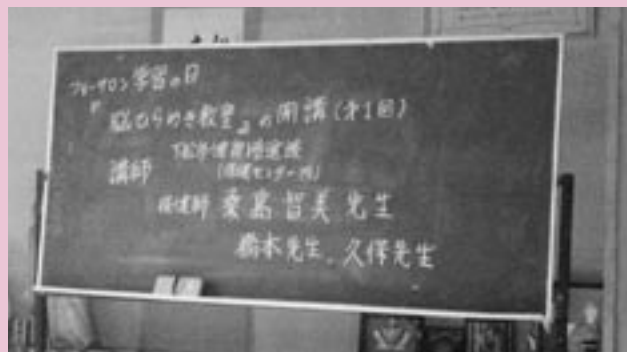 ブルーサロン学習の日
『脳ひらめき教室』の開講(才1回)
下松市健康増進課
(保健センター内)
講師
保健師 桑髙智美先生
橋本先生、久保先生